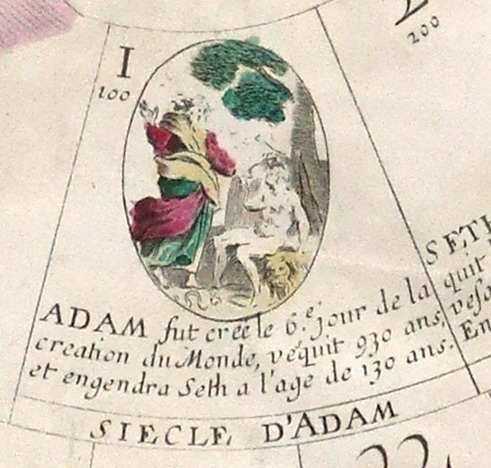 I
100
200
ADAM fut creé le 6.e jour de la
creation du Monde, véquit 930 ans,
et engendra Seth a l'age de 130 ans.
SIECLE D'ADAM
SETH
quit
En
22